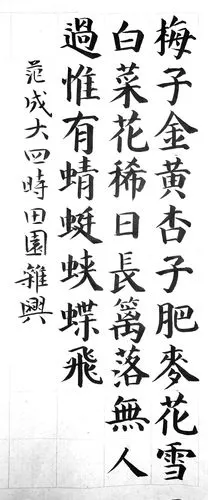 梅子金黃杏子肥麥花雪
白菜花稀日長籬落無人
過惟有蜻蜓蛺蝶飛
范成大四時田園雜興